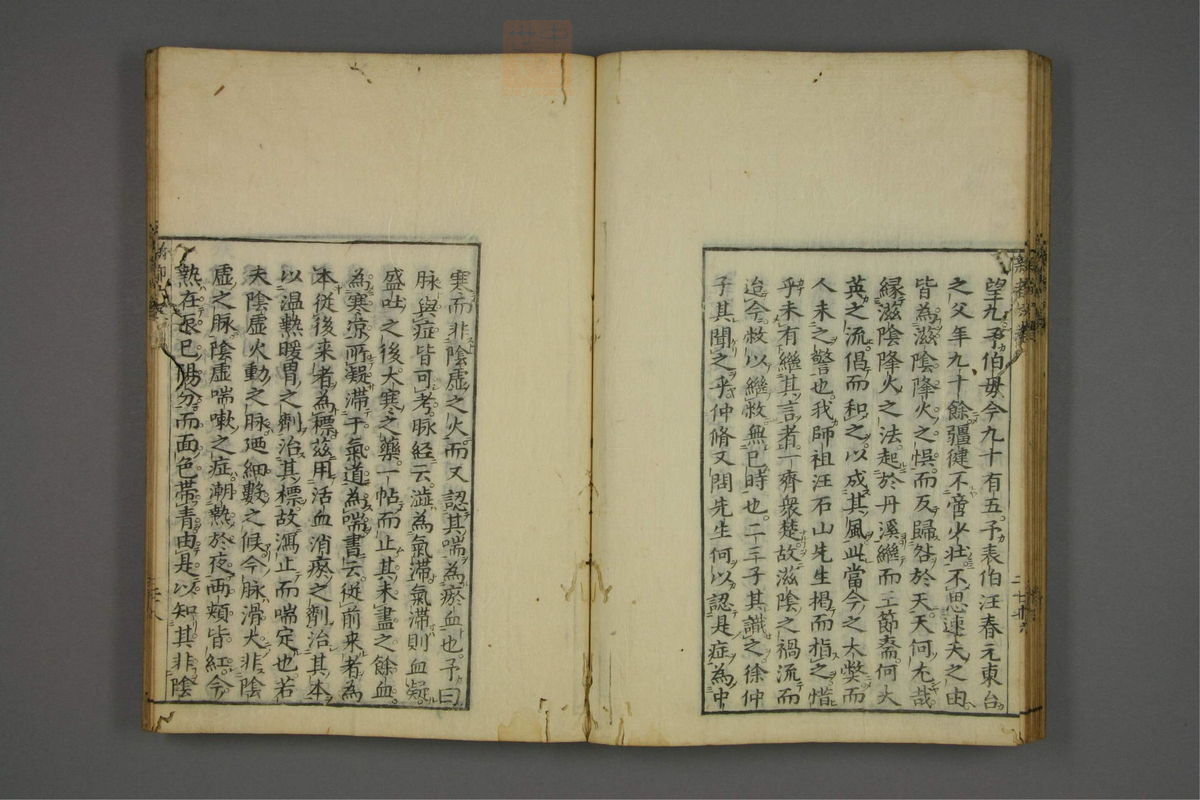 望九予伯母今九十有五予表伯汪春元東台
之父年九十餘疆健不啻少壮不思速夭之由
皆為滋陰降火之悞而反歸咎於天天何尤哉
縁滋陰降火之法起於丹溪継而王節斎何大
英之流倡而和之以成其風此當今之大獘而
人未之警也我師祖汪石山先生掲而指之惜
乎未有継其言者一齊衆楚故滋陰之禍流而
迨今救以継救無已時也二三子其識之徐仲
子其聞之乎仲脩又問先生何以認是症為中
寒而非陰虚之火而又認其喘為瘀血也予曰
脉與症皆可考脉経云澁為氣滞氣滞則血凝
盛吐之後大寒之藥一帖而止其未盡之餘血
為寒凉所凝滞于氣道為喘書云従前来者為
本従後来者為標茲用活血消瘀之劑治其本
以温熱暖胃之劑治其標故瀉止而喘定也若
夫陰虚火動之脉廼細數之候今脉滑大非陰
虚之脉陰虚喘嗽之症潮熱於夜両頬皆紅今
熱在辰巳陽分而面色帯青由是以知其非陰